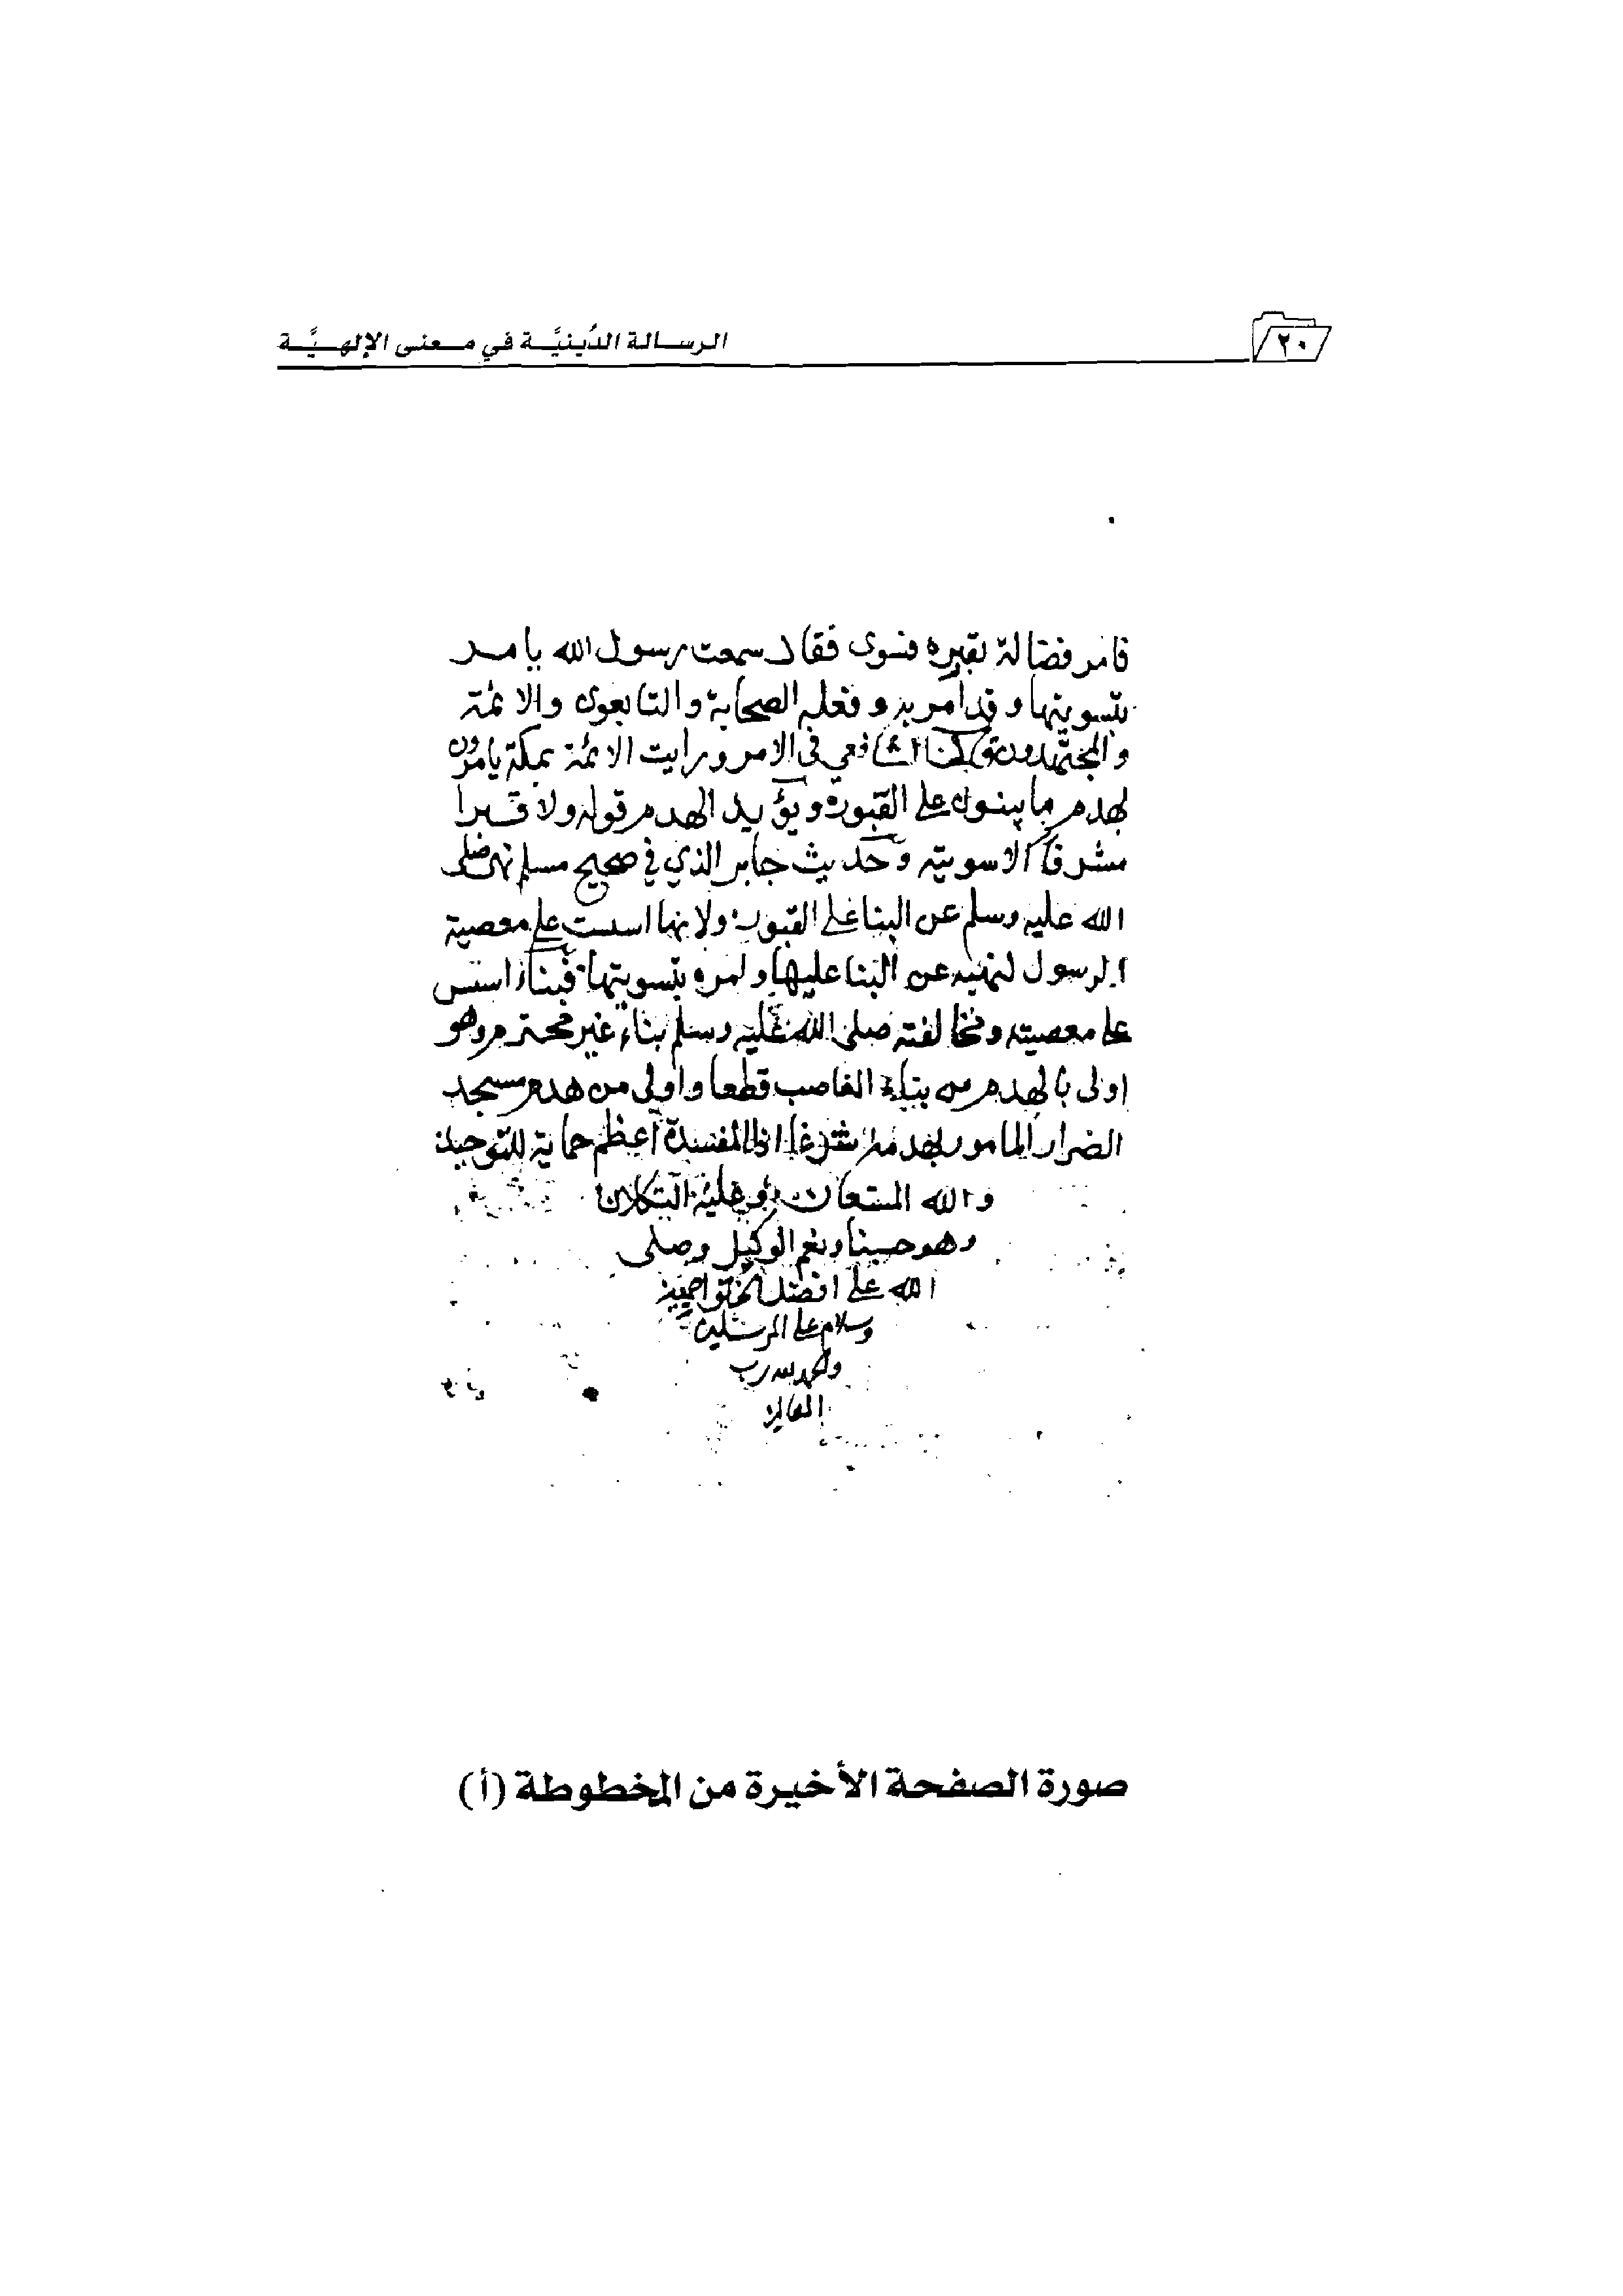 ٢٠
الرسالة الدينيَّة في معنى الإلهيَّة
فامر فضالة بقبره فسوى فقال سمعت رسول الله يامر
بتسويتها وقد امر به وفعله الصحابة والتابعون والائمة
والمجتهدون قال الشافعي في الامر ورايت الائمة بمكة يامرون
بهدم ما يبنون على القبور ويؤيد الهدم قوله ولا قبرا
مشرفا الا سويته وحديث جابر الذي في صحيح مسلم نهى صلى
الله عليه وسلم عن البنا على القبور ولانها اسست على معصية
الرسول لنهيه عن البنا عليها وامره بتسويتها فبناء اسس
على معصيته ومخالفته صلى الله عليه وسلم بناء غير محترم وهو
اولى بالهدم من بناء الغاصب قطعا واولى من هدم مسجد
الضرار المامور بهدمه شرعا اذ المفسدة اعظم حماية للتوحيد
والله المستعان وعليه التكلان
وهو حسبنا ونعم الوكيل وصلى
الله على افضل الخلق اجمعين
وسلام على المرسلين
والحمد لله رب
العالمين
صورة الصفحة الأخيرة من المخطوطة (أ)